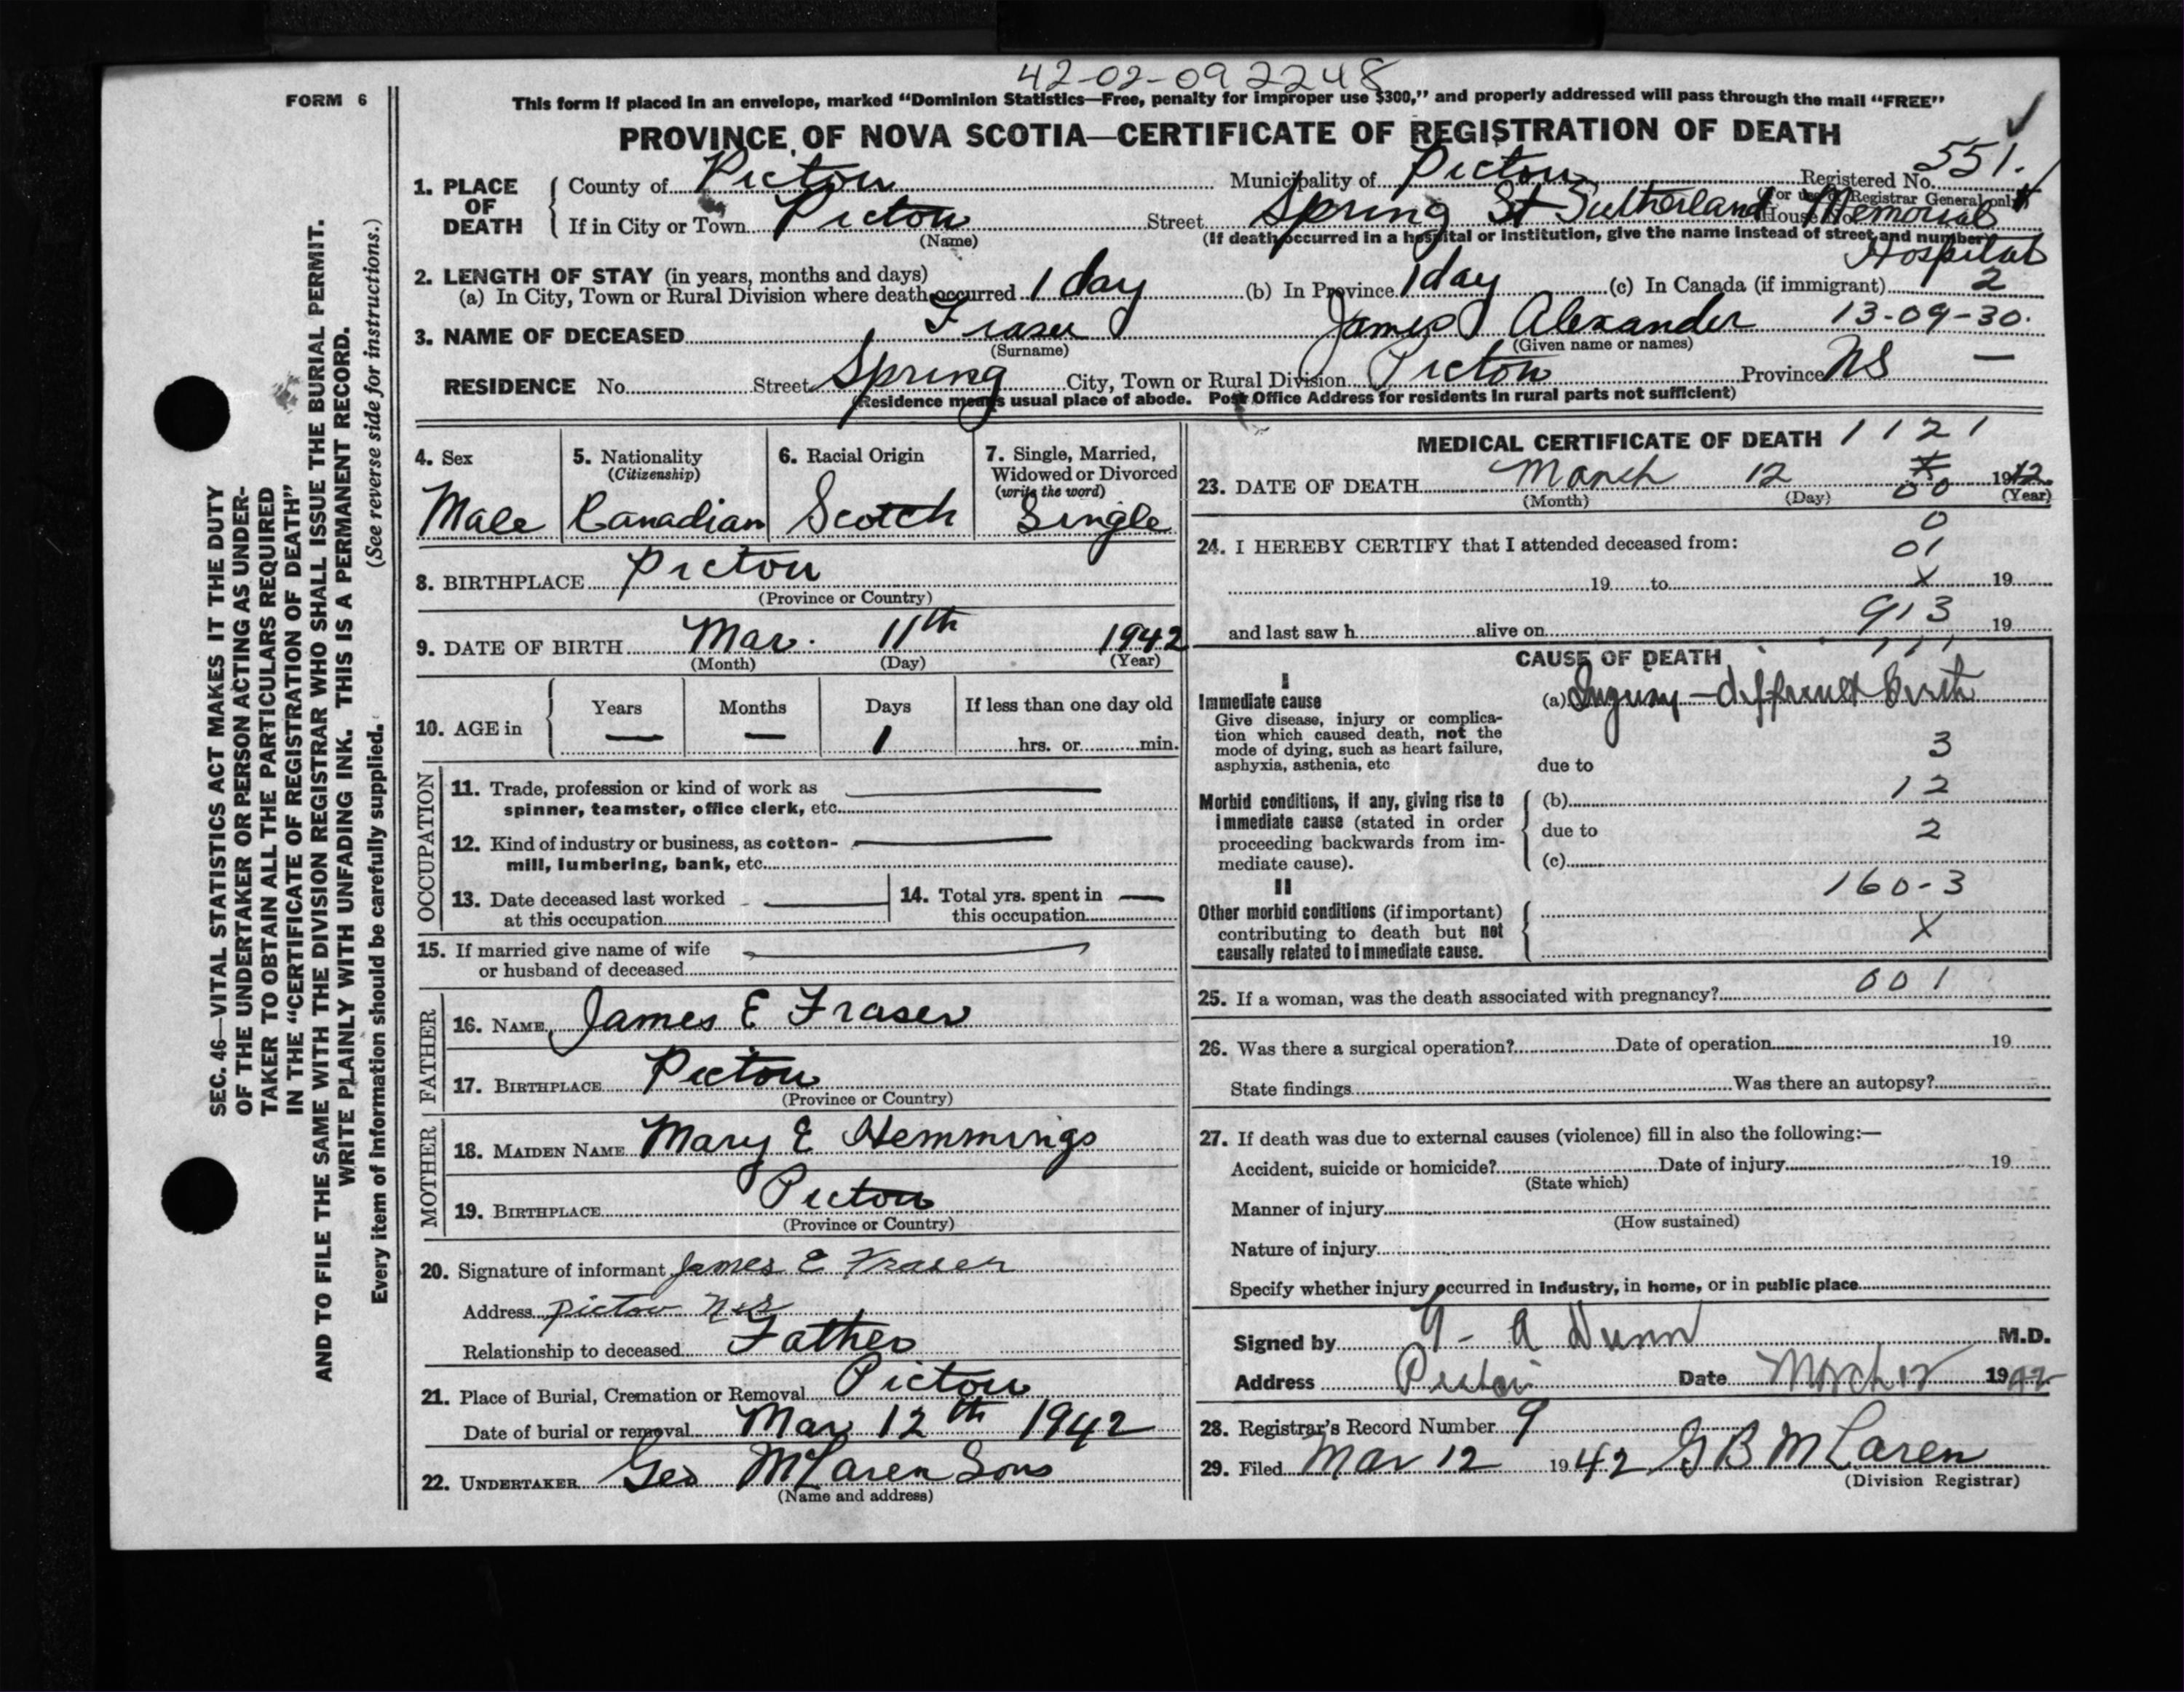 42-02-092248
FORM 6
This form if placed in an envelope, marked "Dominion Statistics—Free, penalty for improper use $300," and properly addressed will pass through the mail "FREE"
PROVINCE OF NOVA SCOTIA—CERTIFICATE OF REGISTRATION OF DEATH
1. PLACE OF DEATH
County of Pictou Municipality of Pictou Registered No. 551.
(For use of Registrar General only)
If in City or Town Pictou Street Spring St Sutherland House No. Memorial
(Name) (If death occurred in a hospital or institution, give the name instead of street and number)
Hospital
2. LENGTH OF STAY (in years, months and days)
(a) In City, Town or Rural Division where death occurred 1 day (b) In Province 1 day (c) In Canada (if immigrant) 2
3. NAME OF DECEASED Fraser James Alexander 13-09-30.
(Surname) (Given name or names)
RESIDENCE No. Street Spring City, Town or Rural Division Pictou Province NS —
(Residence means usual place of abode. Post Office Address for residents in rural parts not sufficient)
4. Sex
Male
5. Nationality
(Citizenship)
Canadian
6. Racial Origin
Scotch
7. Single, Married,
Widowed or Divorced
(write the word)
Single
8. BIRTHPLACE Pictou
(Province or Country)
9. DATE OF BIRTH Mar. 11th 1942
(Month) (Day) (Year)
10. AGE in
Years Months Days If less than one day old
— — 1 hrs. or min.
OCCUPATION
11. Trade, profession or kind of work as —
spinner, teamster, office clerk, etc.
12. Kind of industry or business, as cotton- —
mill, lumbering, bank, etc.
13. Date deceased last worked —
at this occupation
14. Total yrs. spent in —
this occupation
15. If married give name of wife —
or husband of deceased
FATHER
16. NAME James E Fraser
17. BIRTHPLACE Pictou
(Province or Country)
MOTHER
18. MAIDEN NAME Mary E Hemmings
19. BIRTHPLACE Pictou
(Province or Country)
20. Signature of informant James E Fraser
Address Pictou N.S
Relationship to deceased Father
21. Place of Burial, Cremation or Removal Pictou
Date of burial or removal Mar 12th 1942
22. UNDERTAKER Geo McLaren Sons
(Name and address)
MEDICAL CERTIFICATE OF DEATH 1121
23. DATE OF DEATH March 12 1942
(Month) (Day) 00 (Year)
0
24. I HEREBY CERTIFY that I attended deceased from: 01
19 to X 19
and last saw h alive on 913 19
CAUSE OF DEATH 111
I
Immediate cause
Give disease, injury or complica-
tion which caused death, not the
mode of dying, such as heart failure,
asphyxia, asthenia, etc
(a) Injury — difficult birth
3
due to
Morbid conditions, if any, giving rise to
immediate cause (stated in order
proceeding backwards from im-
mediate cause).
(b) 12
due to 2
(c)
160-3
II
Other morbid conditions (if important)
contributing to death but not
causally related to immediate cause.
X
25. If a woman, was the death associated with pregnancy? 001
26. Was there a surgical operation? Date of operation 19
State findings Was there an autopsy?
27. If death was due to external causes (violence) fill in also the following:—
Accident, suicide or homicide? Date of injury 19
(State which)
Manner of injury
(How sustained)
Nature of injury
Specify whether injury occurred in industry, in home, or in public place
Signed by A Dunn M.D.
Address Pictou Date March 12 1942
28. Registrar's Record Number 9
29. Filed Mar 12 1942 G B McLaren
(Division Registrar)
SEC. 46—VITAL STATISTICS ACT MAKES IT THE DUTY
OF THE UNDERTAKER OR PERSON ACTING AS UNDER-
TAKER TO OBTAIN ALL THE PARTICULARS REQUIRED
IN THE "CERTIFICATE OF REGISTRATION OF DEATH"
AND TO FILE THE SAME WITH THE DIVISION REGISTRAR WHO SHALL ISSUE THE BURIAL PERMIT.
WRITE PLAINLY WITH UNFADING INK. THIS IS A PERMANENT RECORD.
(See reverse side for instructions.)
Every item of information should be carefully supplied.